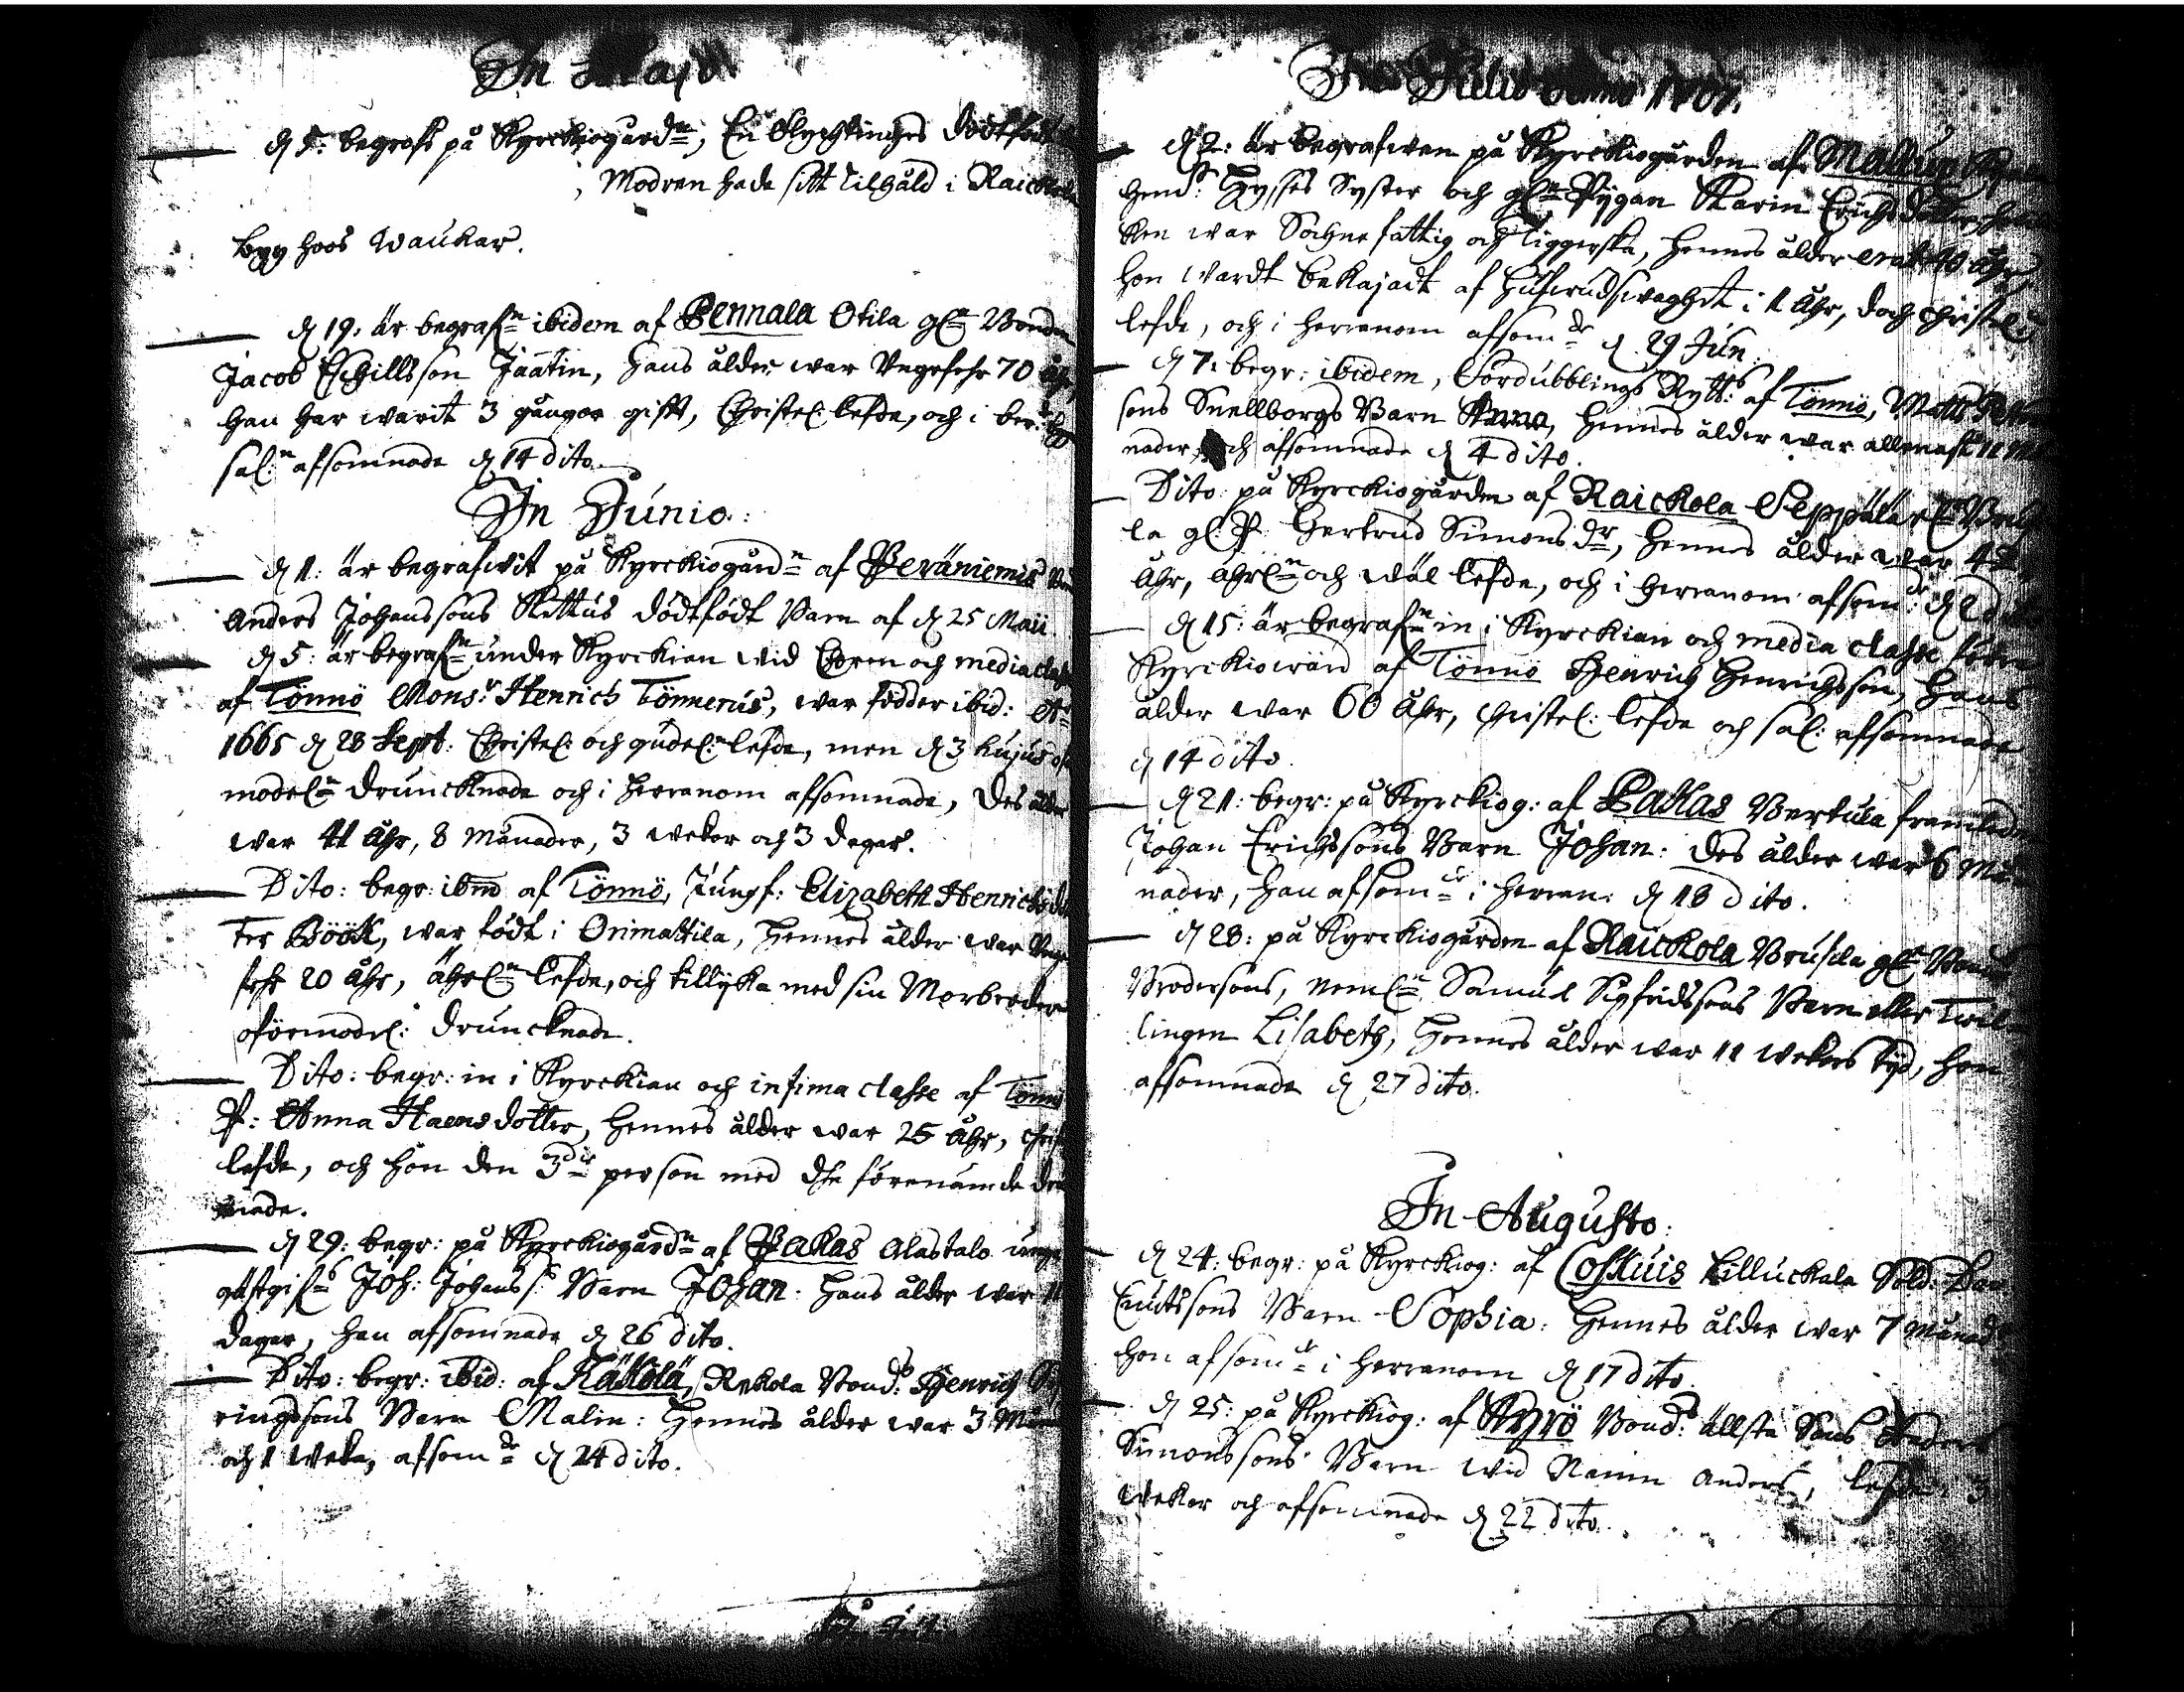 In Majo
d 5: begrofs på Kyrckiogårdn, En Flychtinges dödtföd
Modren hade sitt tilhåld i Raickola
Byy hoos Waukar.
d 19. är begrafn ibidem af Pennala Otila gln Bonden
Jacob Eschillsson Jäätin, hans ålder war Ungefehr 70 åhr,
han har warit 3 gångor gift, Christel: lefde, och i
sal:n afsomnade d 14 dito.
In Junio:
d 1: är begrafwit på Kyrckiogårdn af Peräniemis
Anders Johanssons Kettus dödtfödt Barn af d 25 Maii.
d 5: är begrafn under Kyrckian wid Choren och media classe
af Tönnö Mons:r Henrich Tönnerus, war födder ibid: Ao
1665 d 28 Sept: Christel: och gudel:n lefde, men d 3 hujus
model:n druncknade och i herranom afsomnade, Des ålder
war 41 åhr, 8 Månader, 3 wekor och 3 dagar.
Dito: begr: ibm af Tönnö, Jungf: Elizabeth Henrichsdot
ter Böök, war född i Orimattila, hennes ålder war Unge
fehr 20 åhr, ährln lefde, och tillijka med sin Morbroder
oförmodel: druncknade.
Dito: begr: in i Kyrckian och infima classe af Tönnö
P: Anna Haensdotter, hennes ålder war 25 åhr, Christ
lefde, och hon den 3die person med dhe förenämde
nade.
d 29: begr: på Kyrckiogårdn af Pakas Alastalo unge
Joh: Johanss: Barn Johan. hans ålder war 11
dagar, han afsomnade d 26 dito.
Dito: begr: ibid: af Käkölä, Rekola Bond: Henrich
ringssons Barn Malin: hennes ålder war 3 Mån
och 1 weka, afsomde d 24 dito.
In Julio Anno 1707.
d 2: är begrafwen på Kyrckiogården af Mallusio
hend: Hysses Syster och gln Pygan Karin Erichsdotter,
ken war Sochne fattig och tiggerska, hennes ålder
hon wardt bekajadt af hufwudswaghet i 1 åhr, doch christel:
lefde, och i herranom afsomde d 29 Jun:
d 7: begr: ibidem, Fördubblings Rytt: af Tönnö, Matts
sons Snellborgs Barn Anna, hennes ålder war allenast 11
nader, och afsomnade d 4 dito.
Dito: på Kyrckiogården af Raickola Seppälä
la gl: P: Hertrud Simonsdr, hennes ålder war
åhr, ährln och wäl lefde, och i herranom afsomde d 2 dito
d 15: är begrafn in i Kyrckian och media classe
Kyrckiowärd af Tönnö Henrich Henrichsson, hans
ålder war 60 åhr, Christel: lefde och sal: afsomnade
d 14 dito.
d 21: begr: på Kyrckiog: af Pakas Bertula framledn
Johan Erichssons Barn Johan: des ålder war 6 Må
nader, han afsomde i herran: d 18 dito.
d 28: på Kyrckiogården af Raickola Brusila gln Bond
Brodersons, neml:n Samuel Sigfridssons Barn eller Twil
lingen Lisabeth, hennes ålder war 11 wekors tijd, hon
afsomnade d 27 dito.
In Augusto:
d 24: begr: på Kyrckiog: af Coskuis Killuckala Sold:
Cnutssons Barn Sophia: hennes ålder war 7 månad
hon afsomde i herranom d 17 dito.
d 25: på Kyrckiog: af Kyrö Bond: älsta Sons Anders
Simonssons Barn wid Namn Anders, lefde 3
wekor och afsomnade d 22 dito.